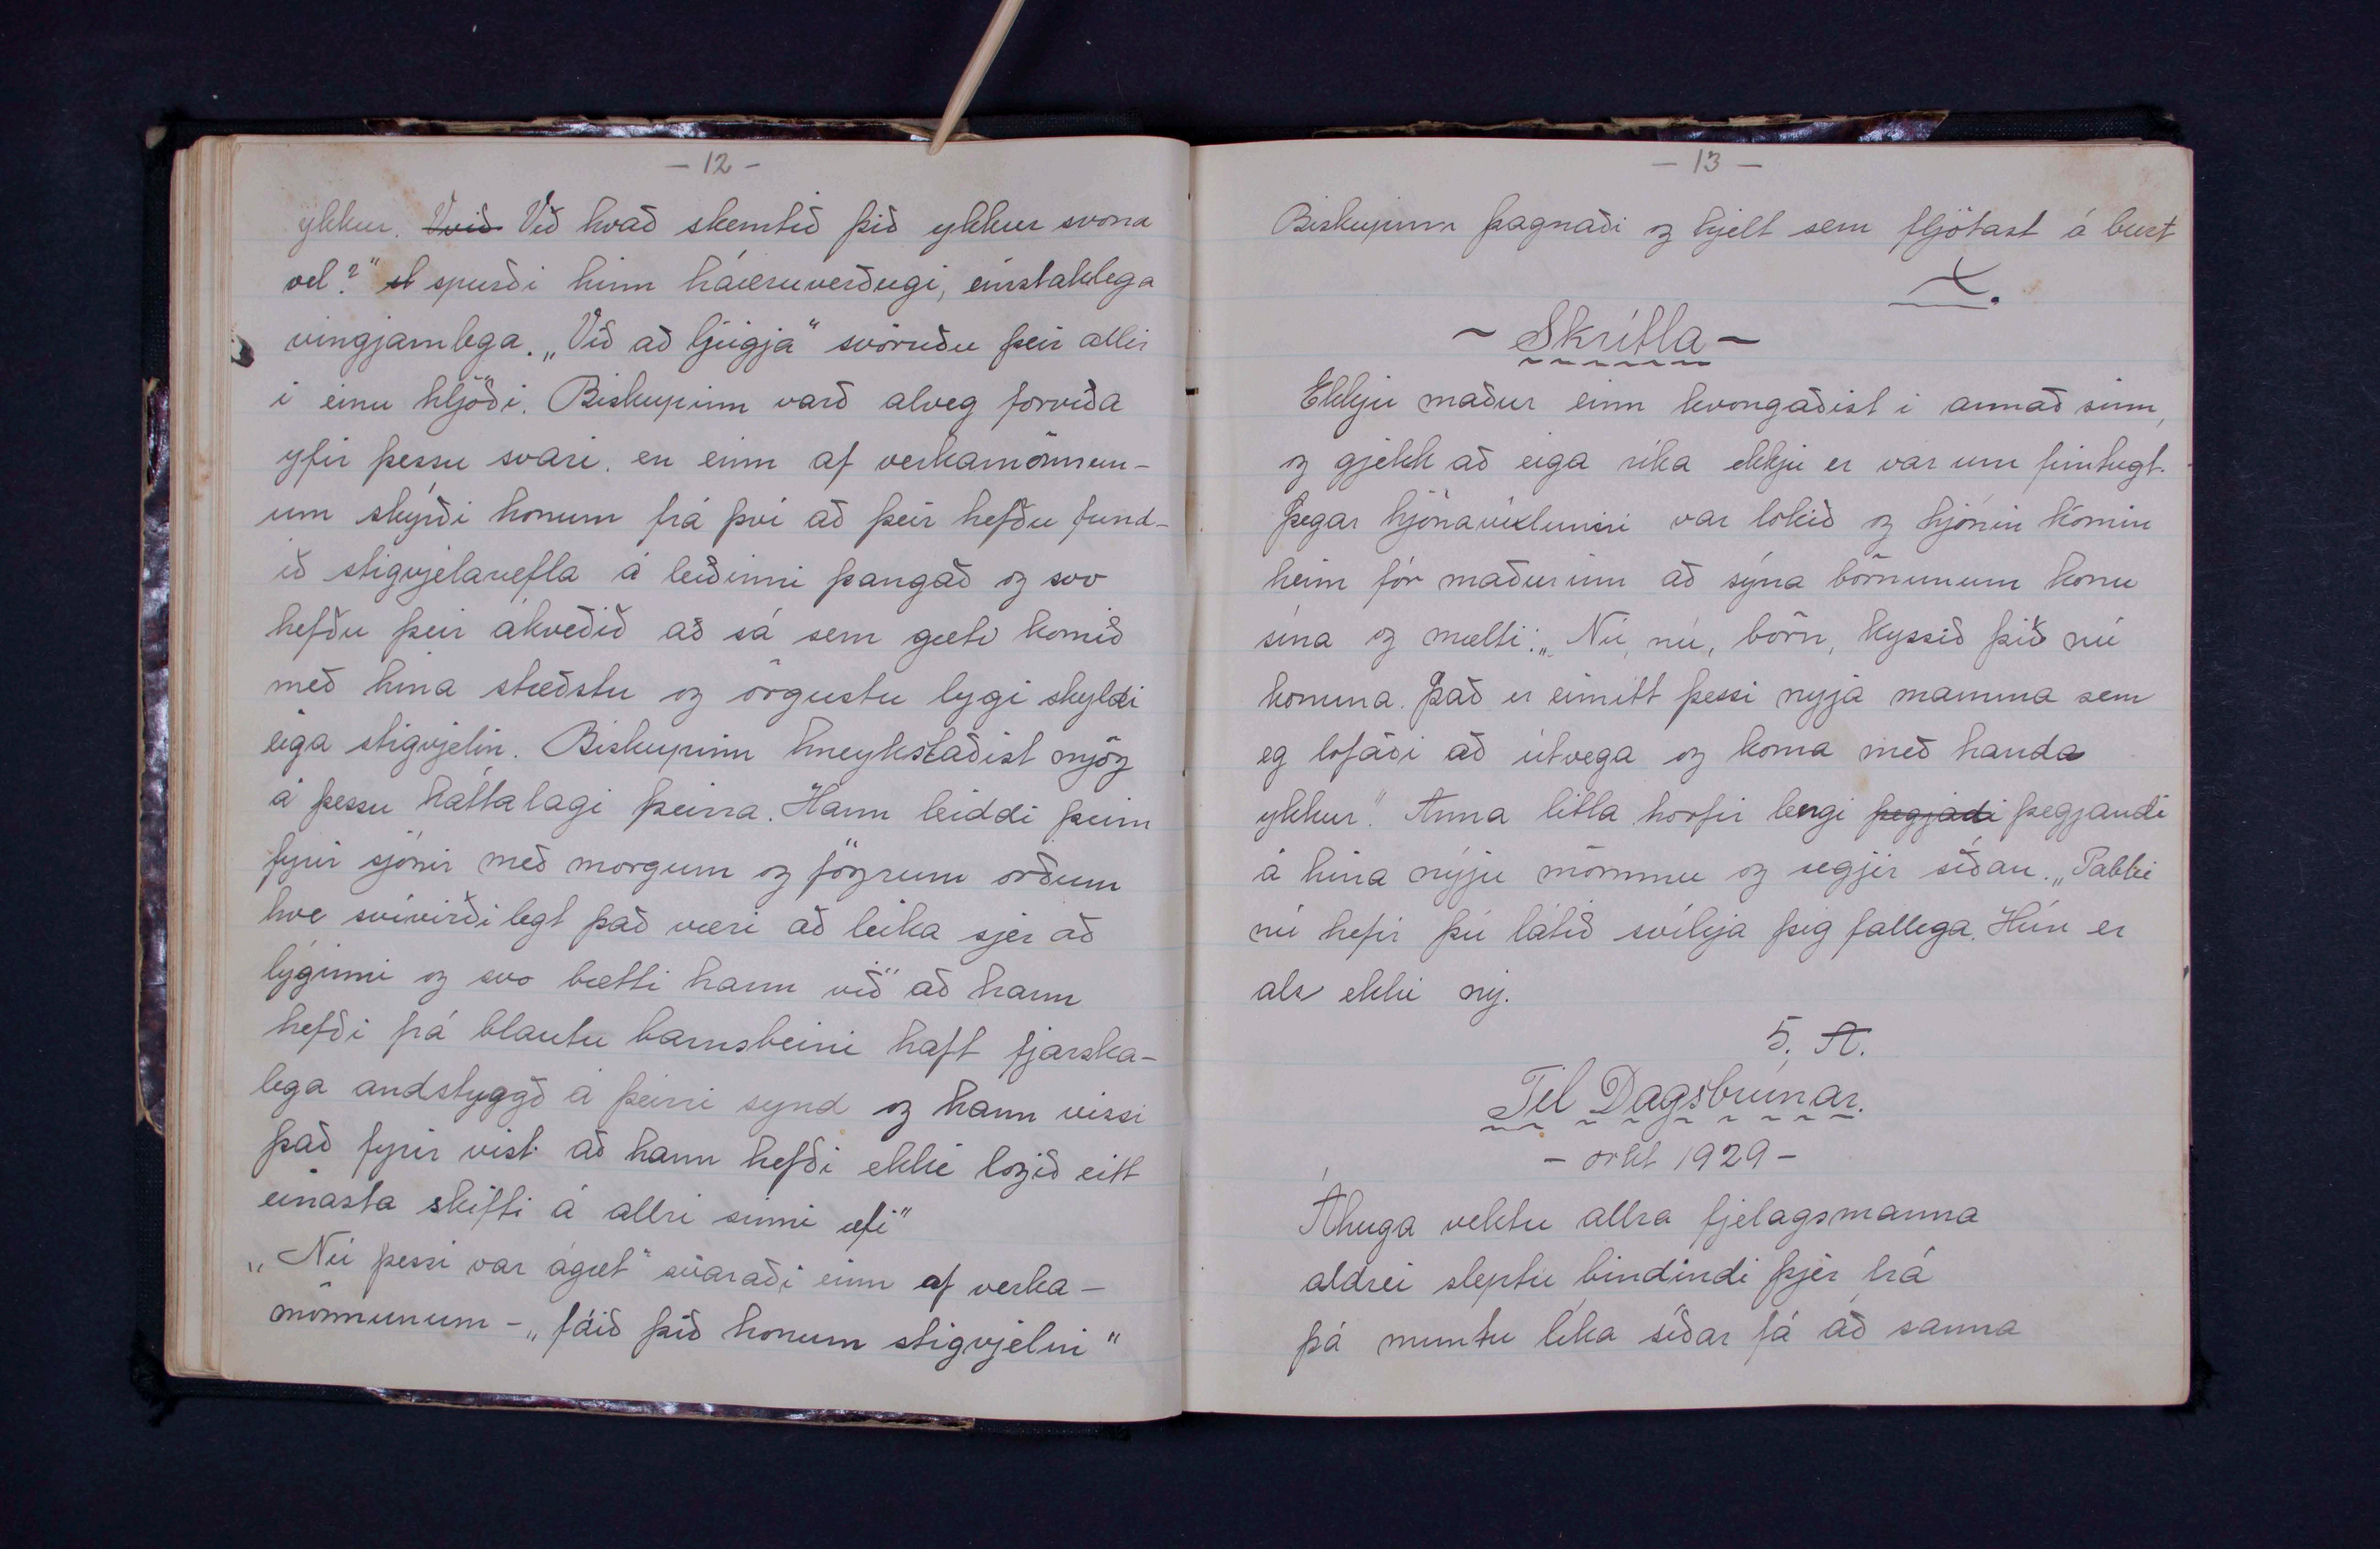 - 12 -
ykkur. Vvið Við hvað skemtið þið ykkur svona
vel?" st spurði hinn háæruverðugi, einstaklega
vingjarnlega. „Við að ljúgja" svöruðu þeir allir
i einu hljóði. Biskupinn varð alveg forviða
yfir þessu svari. en einn af verkamönnun-
um skýrði honum frá því að þeir hefðu fund-
ið stigvjelaræfla á leiðinni þangað og svo
hefðu þeir ákveðið að sá sem gæti komið
með hina stæðstu og örgustu lygi skyldi
eiga stigvjelin. Biskupinn hneykslaðist mjög
á þessu háttalagi þeirra. Hann leiddi þeim
fyrir sjónir með morgum og fögrum orðum
hve svívirðilegt það væri að leika sjer að
lýginni og svo bætti hann við" að hann
hefði frá blautu barnsbeini haft fjarska-
lega andstyggð á þeirri synd og hann vissi
það fyrir vist að hann hefði ekki logið eitt
einasta skifti á allri sinni æfi"
„Nú þessi var ágæt" svaraði einn af verka-
mönnunum - „fáið þið honum stigvjelin"
- 13 -
Biskupinn þagnaði og hjelt sem fljótast á burt
X.
~ Skrítla ~
Ekkju maður einn kvongaðist i annað sinn,
og gjekk að eiga ríka ekkju er var um fimtugt.
Þegar hjónavíxlunni var lokið og hjónin komin
heim fór maðurinn að sýna börnunum konu
sína og mælti: „Nú, nú, börn, kyssið þið nú
konuna. Það er einmitt þessi nyja mamma sem
eg lofaði að útvega og koma með handa
ykkur." Anna litla horfir lengi þegjadi þegjandi
á hina nýju mömmu og segjir síðan. „Pabbi
nú hefir þú látið svíkja þig fallega. Hún er
als ekki ný.
5. A.
Til Dagsbrúnar.
- orkt 1929 -
Áhuga vektu allra fjelagsmanna
aldrei sleptu bindindi þjer frá
þá muntu líka síðar fá að sanna